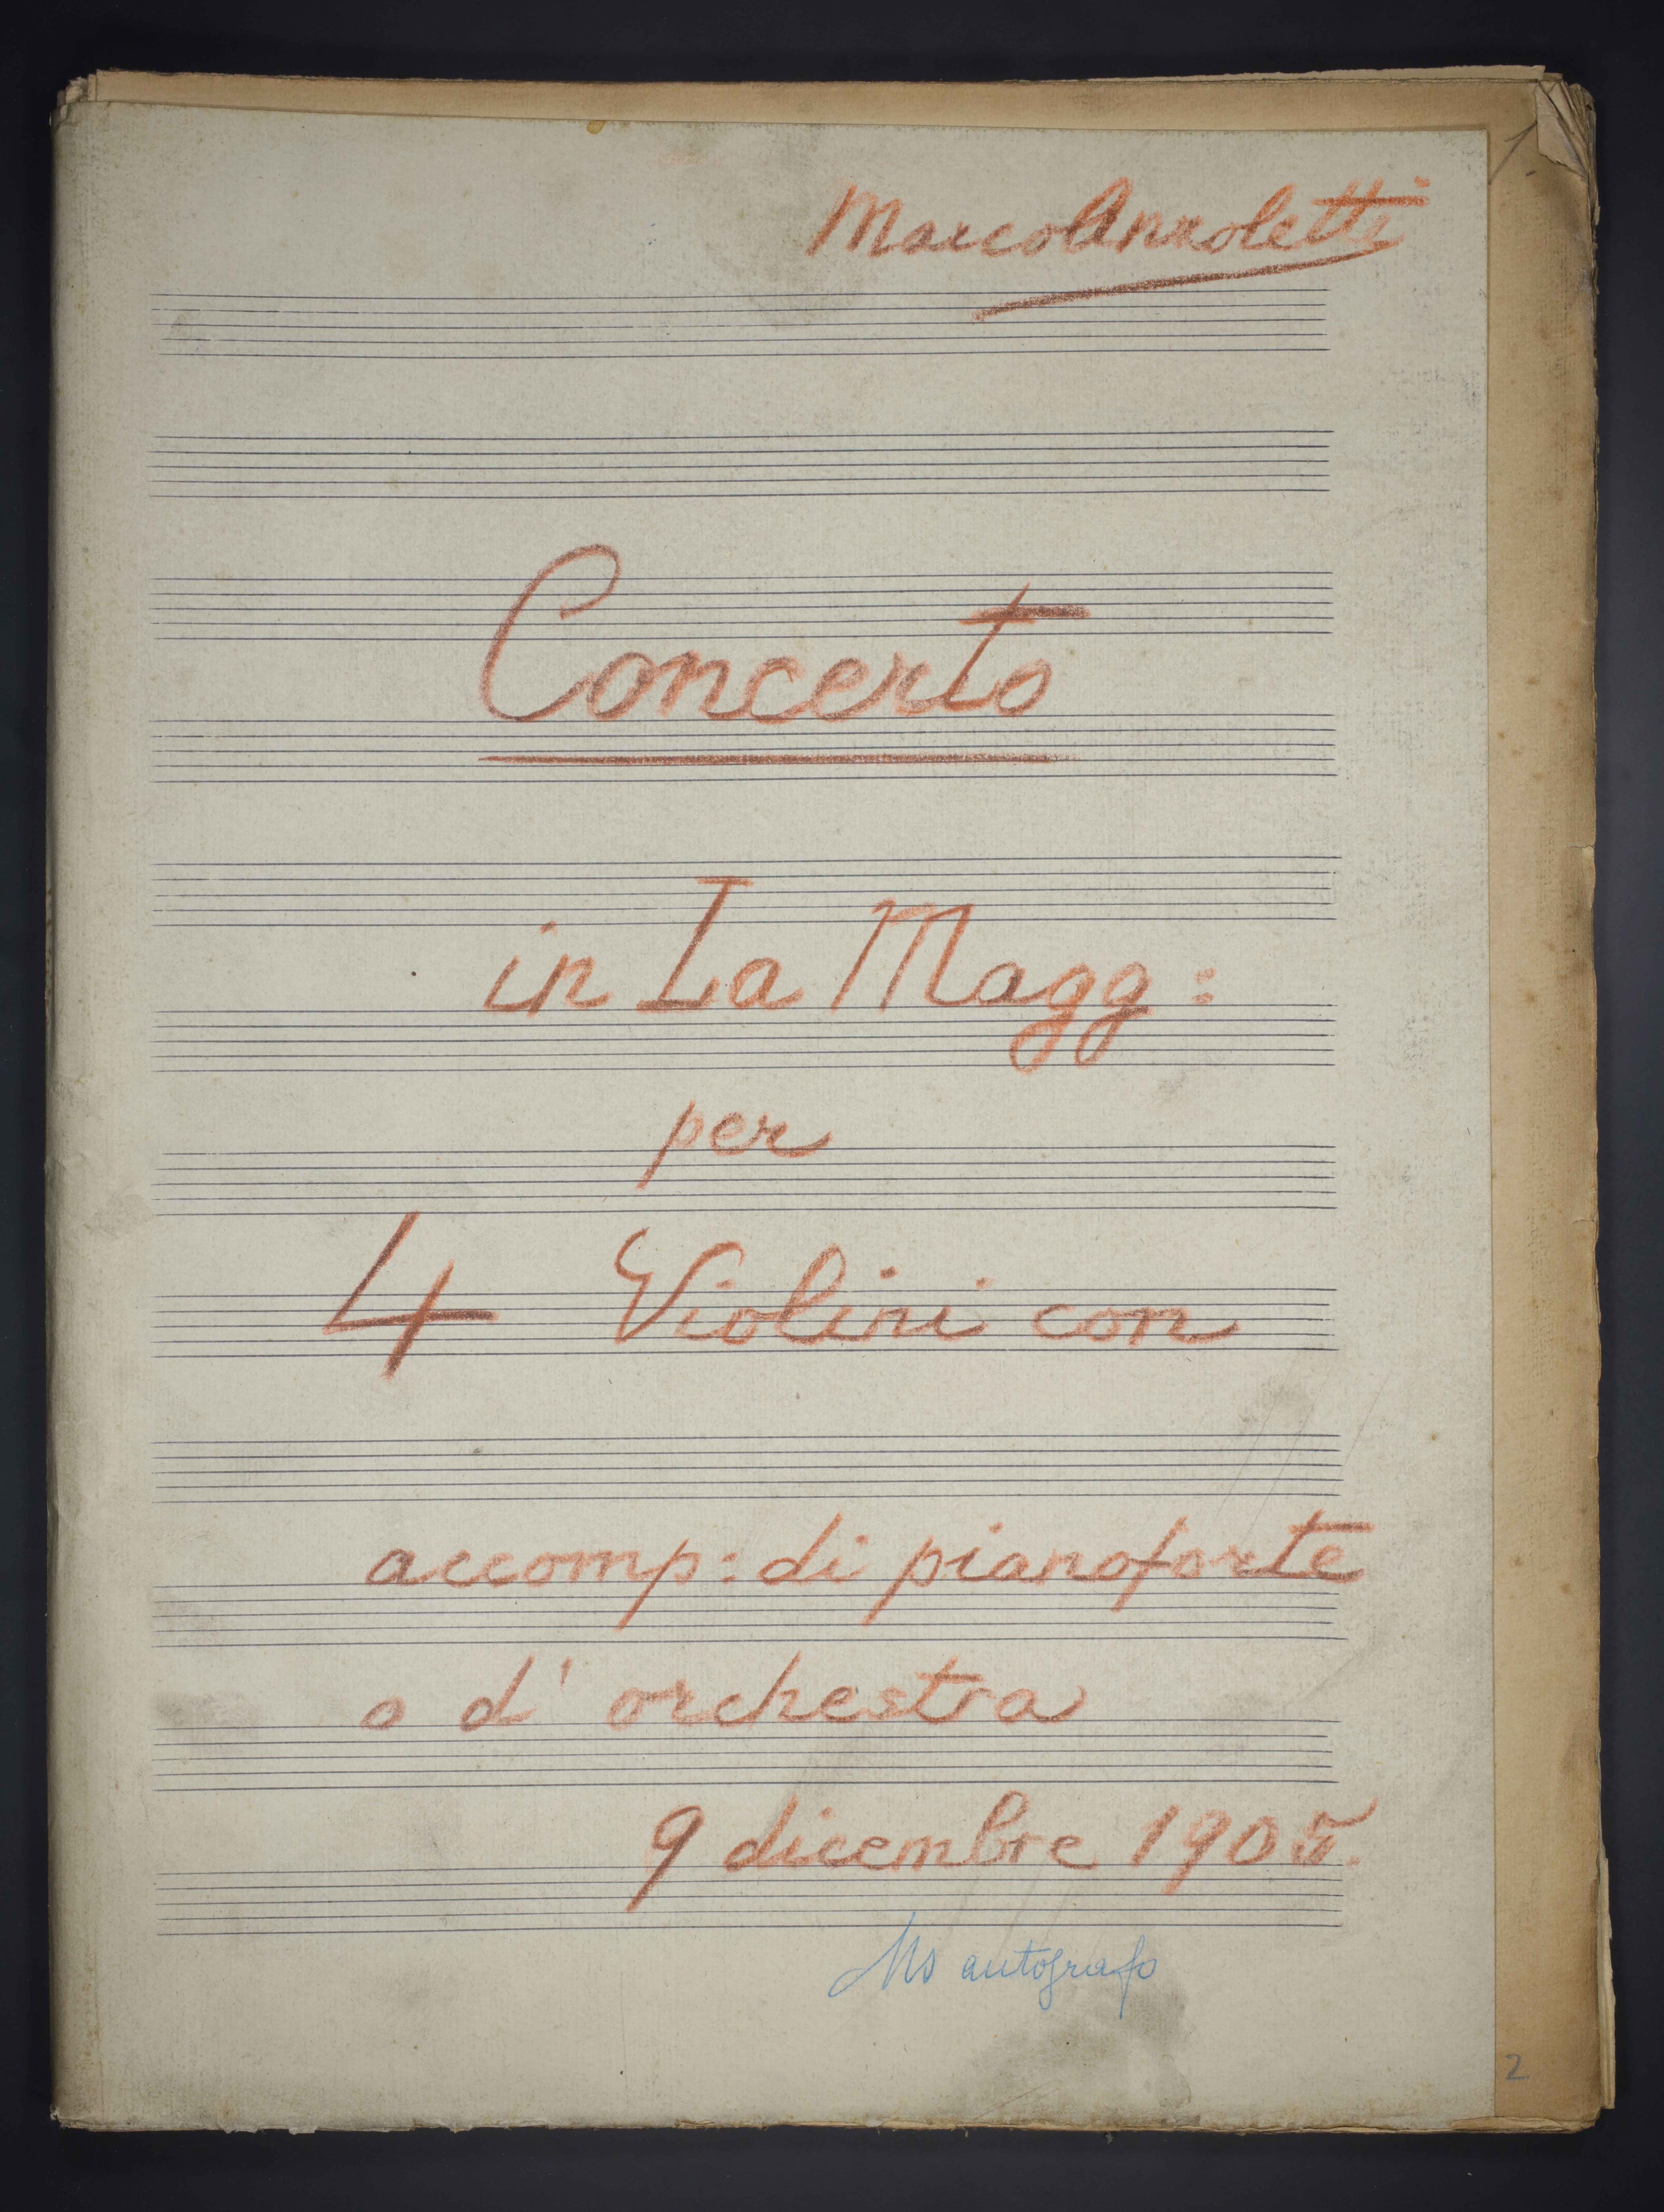 1.
Marco Anzoletti
Concerto
in La Magg:
per
4 Violini con
accomp: di pianoforte
o d' orchestra
9 dicembre 1905.
Ms autografo
2